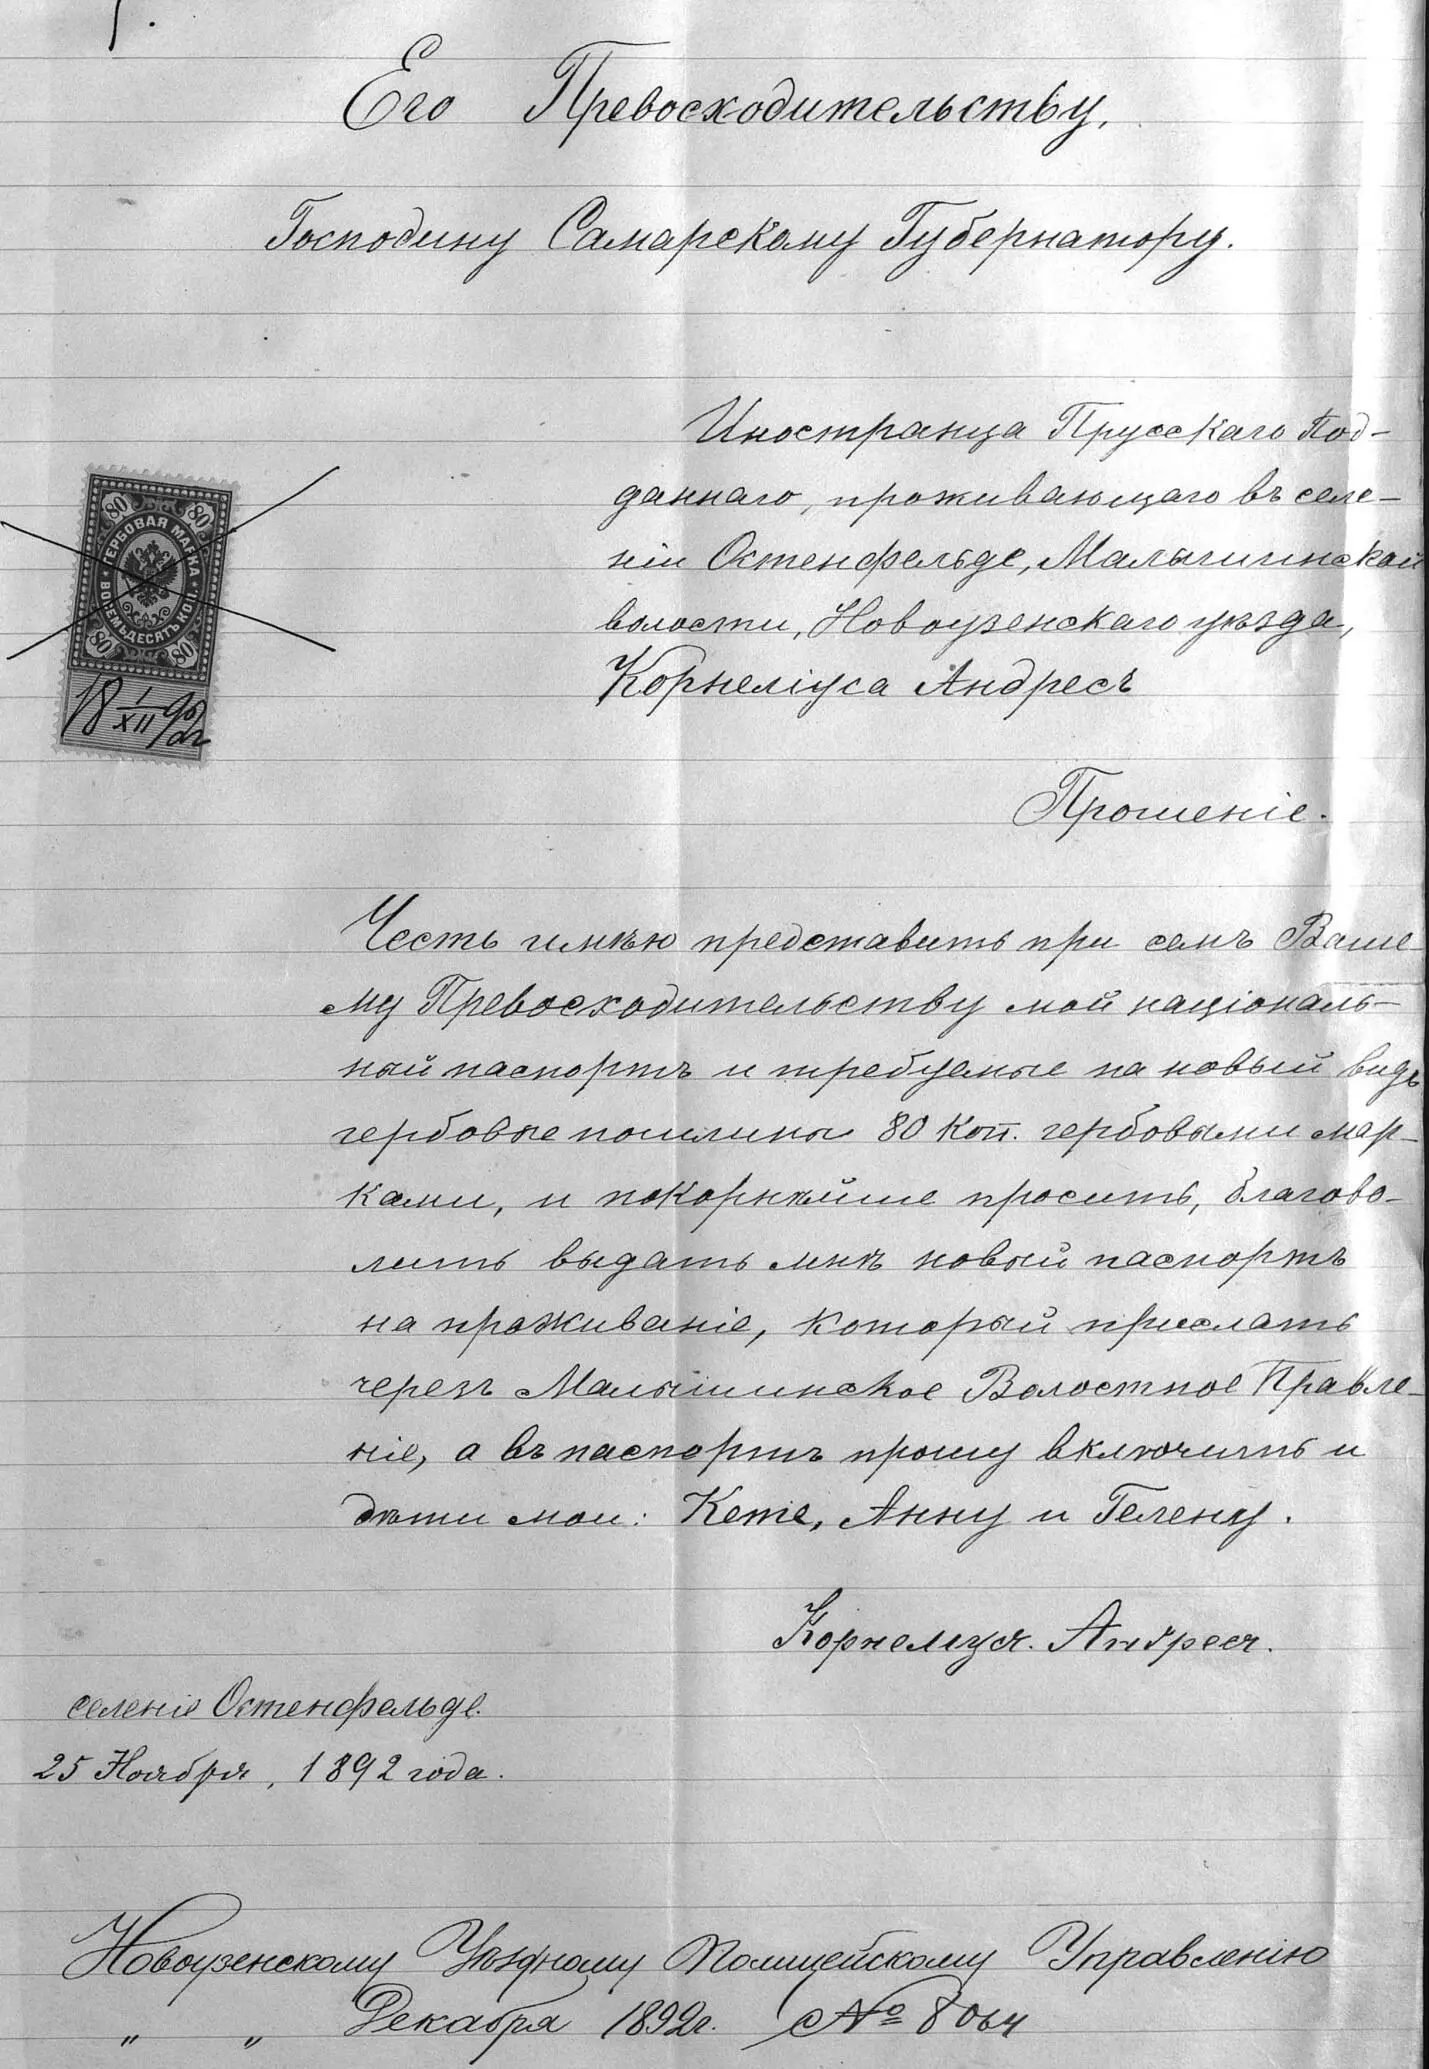 Его Превосходительству,
Господину Самарскому Губернатору.
Иностранца Прусскаго Под-
даннаго, проживающаго въ селе-
ніи Остенфельде, Малышинской
волости, Новоузенскаго уѣзда,
Корнеліуса Андресъ
Прошеніе.
Честь имѣю представить при семъ Ваше-
му Превосходительству мой національ-
ный паспортъ и требуемые на новый видъ
гербовые пошлины 80 коп. гербовыми мар-
ками, и покорнѣйше просить, благово-
лить выдать мнѣ новый паспортъ
на проживаніе, который прислать
черезъ Малышинское Волостное Правле-
ніе, а въ паспортъ прошу включить и
дѣти мои: Кете, Анну и Гелену.
Корнелиус. Андресъ.
селеніе Остенфельде.
25 Ноября, 1892 года.
Новоузенскому Уѣздному Полицейскому Управленію
" " Декабря 1892г. № 8064
80 80
ГЕРБОВАЯ МАРКА
ВОСЕМЬДЕСЯТЪ КОП.
80 80
18 I/XII 92